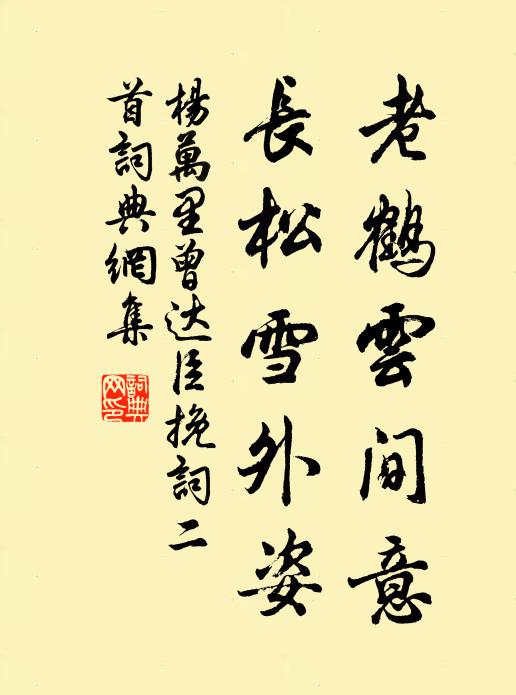 老鶴雲間意
長松雪外姿
楊萬里曾达臣挽詞二
首詞典網集
詞典
网印